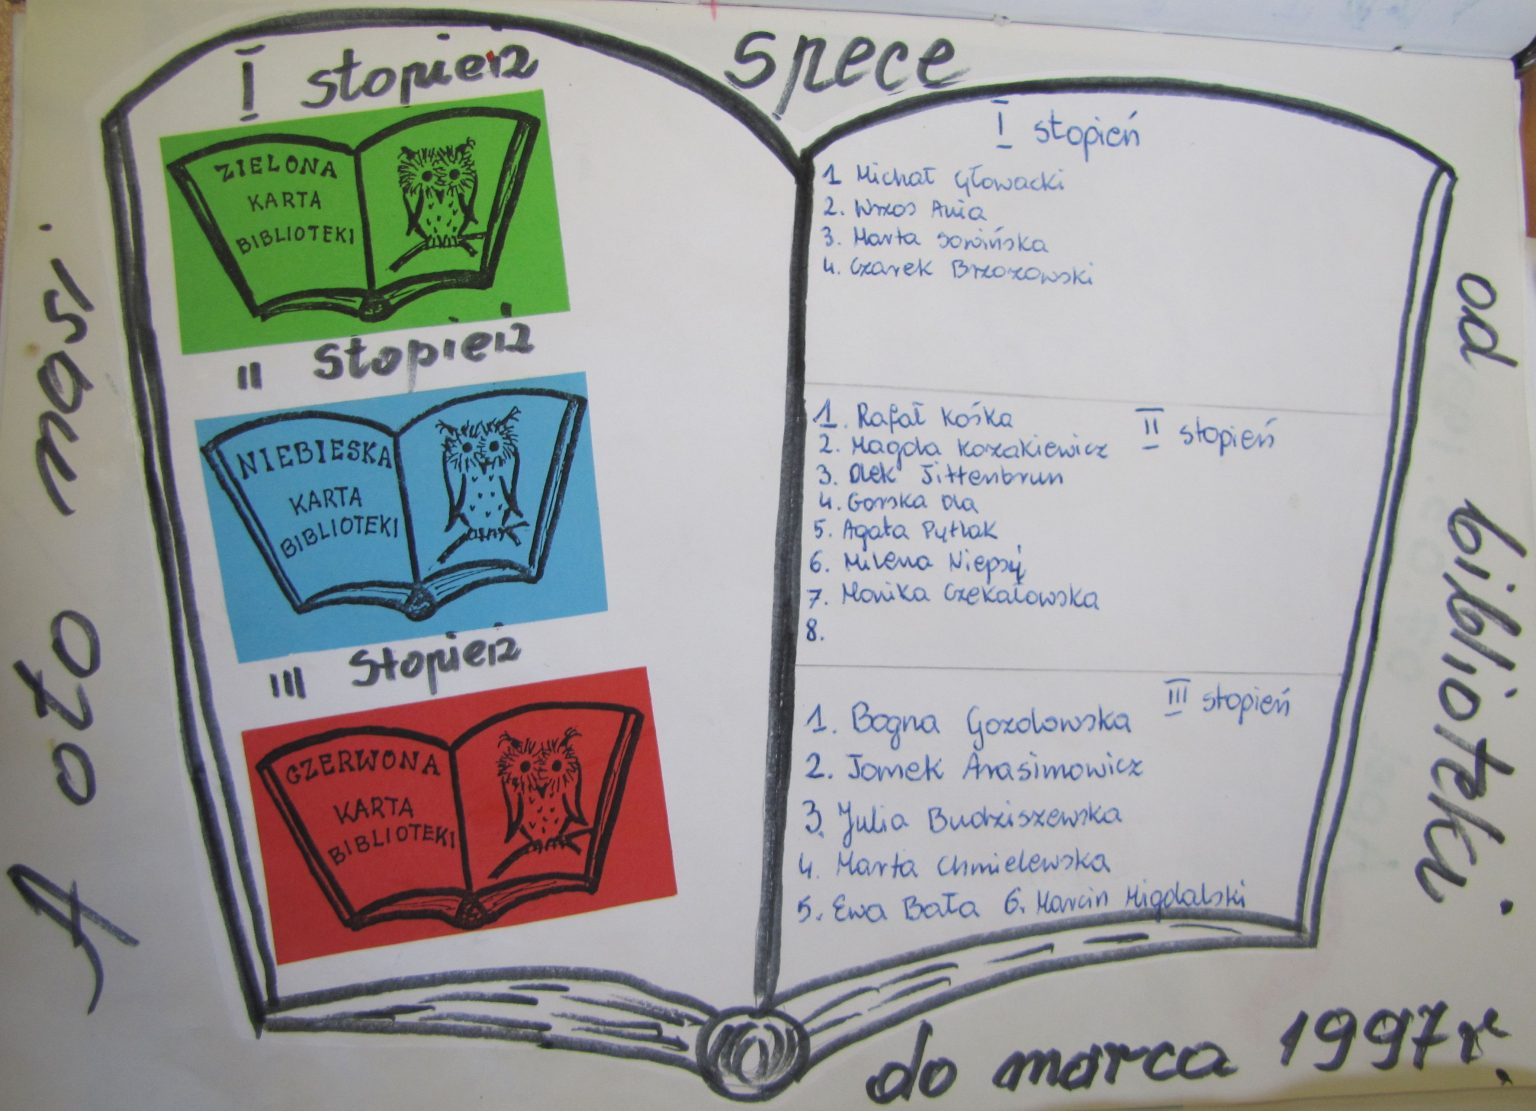 A oto nasi
spece
od biblioteki
do marca 1997 r.
I stopień
ZIELONA
KARTA
BIBLIOTEKI
II stopień
NIEBIESKA
KARTA
BIBLIOTEKI
III stopień
CZERWONA
KARTA
BIBLIOTEKI
I stopień
1 Michał Głowacki
2. Wrzos Ania
3. Marta Sowińska
4. Czarek Brzozowski
II stopień
1. Rafał Kośka
2. Magda Kozakiewicz
3. Olek Jittenbrun
4. Gorska Ola
5. Agata Pytlak
6. Milena Niepsuj
7. Monika Czekałowska
8.
III stopień
1. Bogna Gozdowska
2. Tomek Arasimowicz
3. Julia Budziszewska
4. Marta Chmielewska
5. Ewa Bała 6. Marcin Migdalski